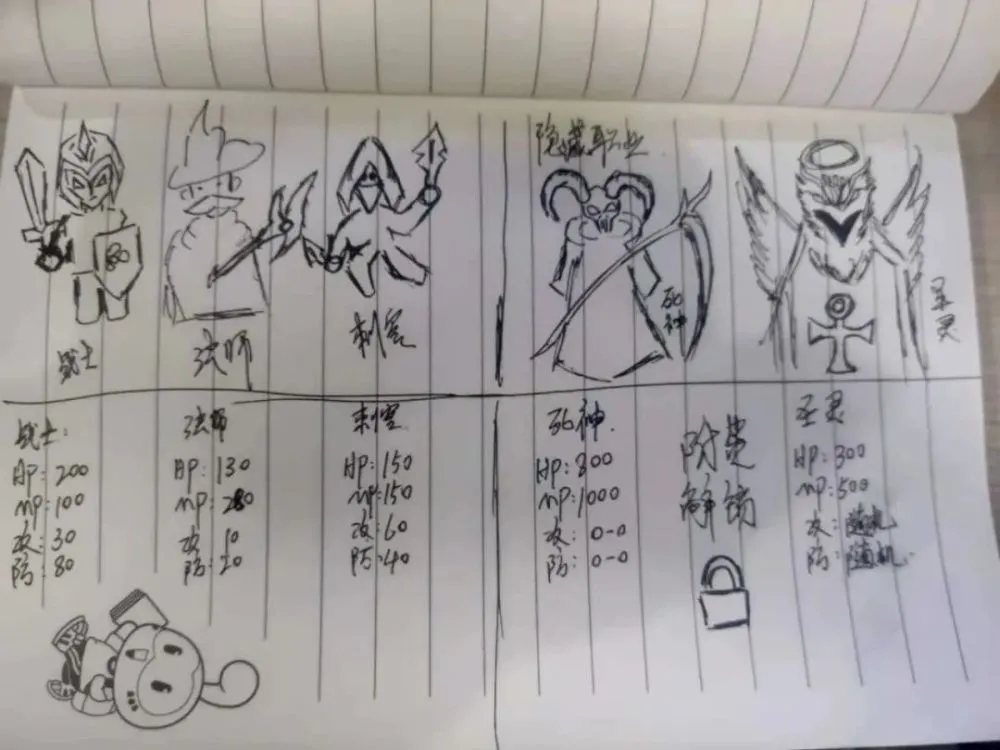 隐藏职业
战士
法师
刺客
死神
圣灵
战士:
HP: 200
MP: 100
攻: 30
防: 80
法师
HP: 130
MP: 280
攻 10
防: 20
刺客
HP: 150
MP: 150
攻: 60
防: 40
死神
HP: 800
MP: 1000
攻: 0-0
防: 0-0
附费
解锁
圣灵
HP: 300
MP: 500
攻: 随机
防: 随机